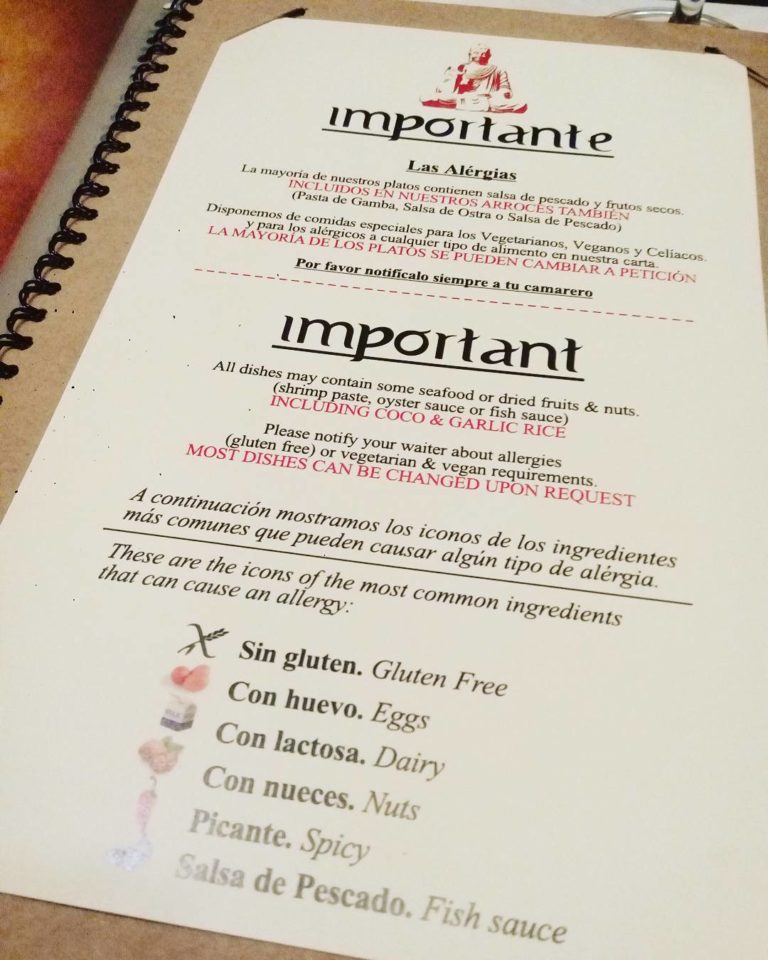 importante
Las Alérgias
La mayoría de nuestros platos contienen salsa de pescado y frutos secos.
INCLUIDOS EN NUESTROS ARROCES TAMBIÉN
(Pasta de Gamba, Salsa de Ostra o Salsa de Pescado)
Disponemos de comidas especiales para los Vegetarianos, Veganos y Celíacos.
y para los alérgicos a cualquier tipo de alimento en nuestra carta.
LA MAYORÍA DE LOS PLATOS SE PUEDEN CAMBIAR A PETICIÓN
Por favor notifícalo siempre a tu camarero
important
All dishes may contain some seafood or dried fruits & nuts.
(shrimp paste, oyster sauce or fish sauce)
INCLUDING COCO & GARLIC RICE
Please notify your waiter about allergies
(gluten free) or vegetarian & vegan requirements.
MOST DISHES CAN BE CHANGED UPON REQUEST
A continuación mostramos los iconos de los ingredientes
más comunes que pueden causar algún tipo de alérgia.
These are the icons of the most common ingredients
that can cause an allergy:
Sin gluten. Gluten Free
Con huevo. Eggs
Con lactosa. Dairy
Con nueces. Nuts
Picante. Spicy
Salsa de Pescado. Fish sauce